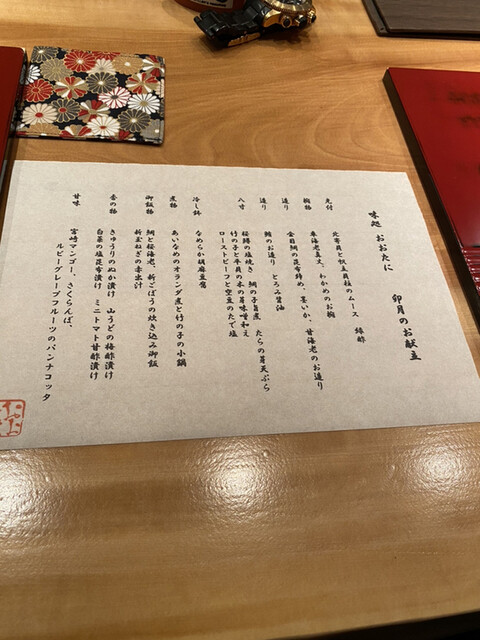 味処 おおたに 卯月のお献立
先付 北寄貝と帆立貝柱のムース 緑酢
椀物 車海老真丈、わかめのお椀
造り 金目鯛の昆布締め、墨いか、甘海老のお造り
造り 鰹のお造り とろみ醤油
八寸 桜鱒の塩焼き 鯛の子旨煮 たらの芽天ぷら
竹の子と平貝の木の芽味噌和え
ローストビーフと空豆のたで塩
冷し鉢 なめらか胡麻豆腐
煮物 あいなめのオランダ煮と竹の子の小鍋
御飯物 鯛と桜海老、新ごぼうの炊き込み御飯
新玉ねぎの赤出汁
香の物 きゅうりのぬか漬け 山うどの梅酢漬け
白菜の塩昆布漬け ミニトマト甘酢漬け
甘味 宮崎マンゴー、さくらんぼ、
ルビーグレープフルーツのパンナコッタ